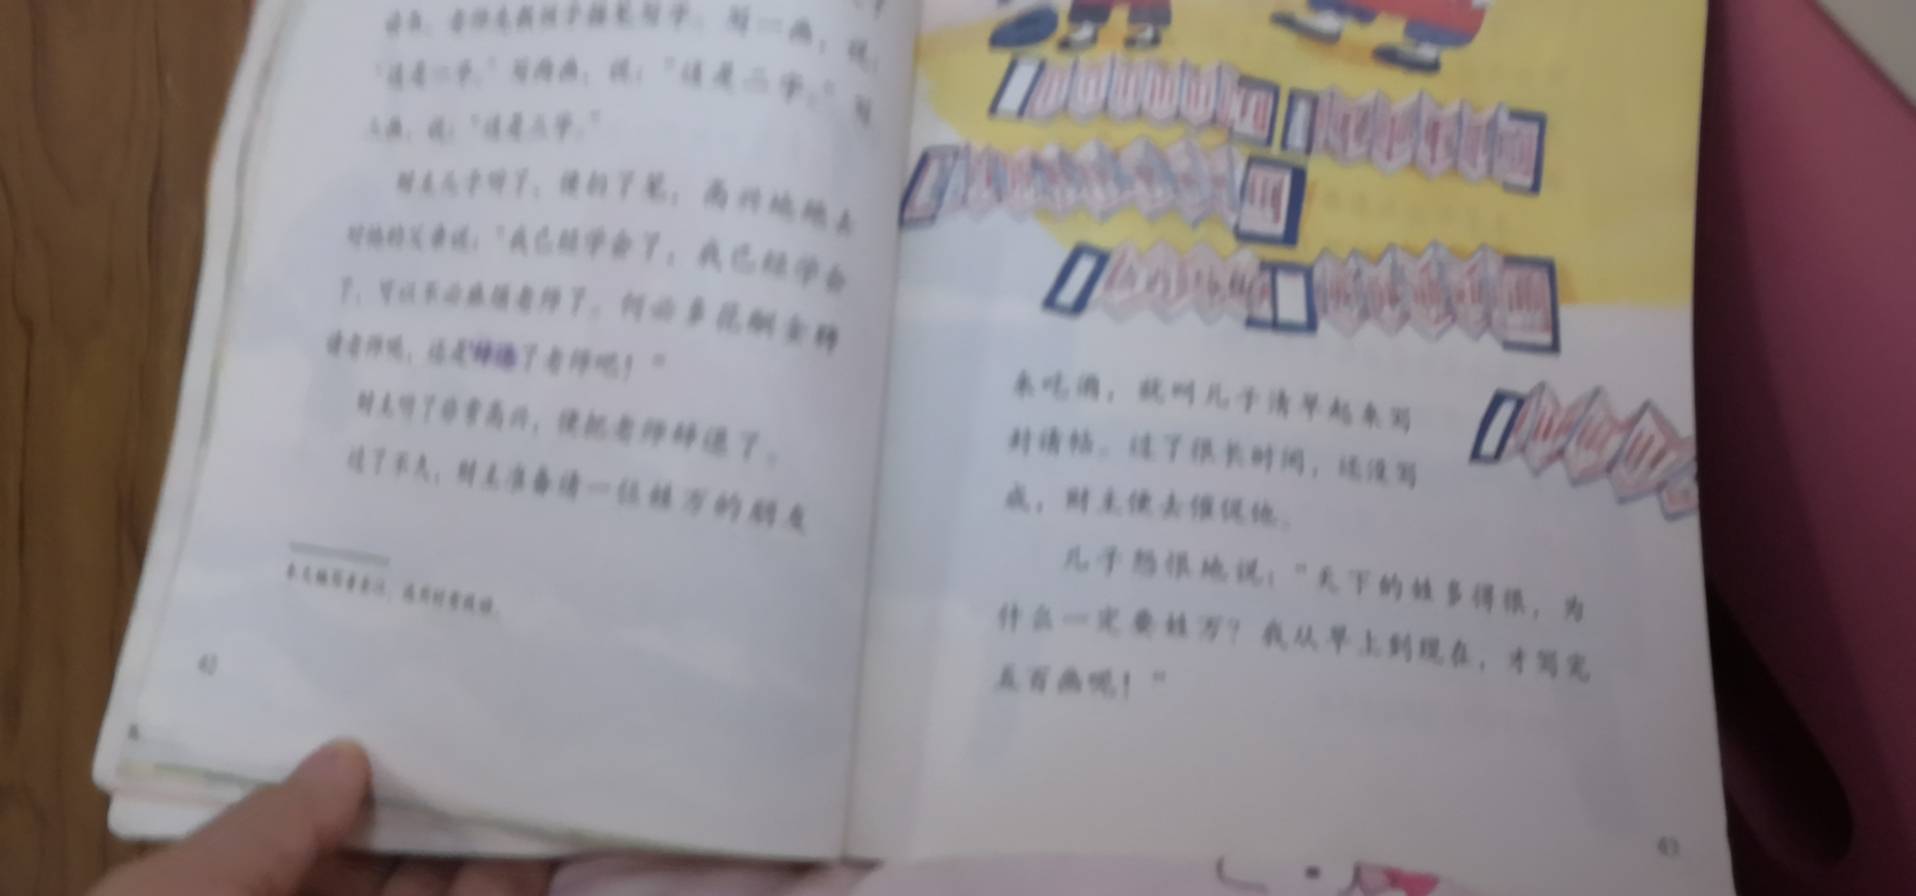 老师先教孩子握笔写字。写一画，说：
“这是一字。”写两画，说：“这是二字。”写
三画，说：“这是三字。”
财主儿子听了，便扔了笔，高兴地跑去
对他的父亲说：“我已经学会了，我已经学会
了，可以不必麻烦老师了。何必多花酬金聘
请老师呢，还是辞退了老师吧！”
财主听了非常高兴，便把老师辞退了。
过了不久，财主准备请一位姓万的朋友
42
来吃酒，就叫儿子清早起来写
封请帖。过了很长时间，还没写
成，财主便去催促他。
儿子愁恨地说：“天下的姓多得很，为
什么一定要姓万？我从早上到现在，才写完
五百画呢！”
43